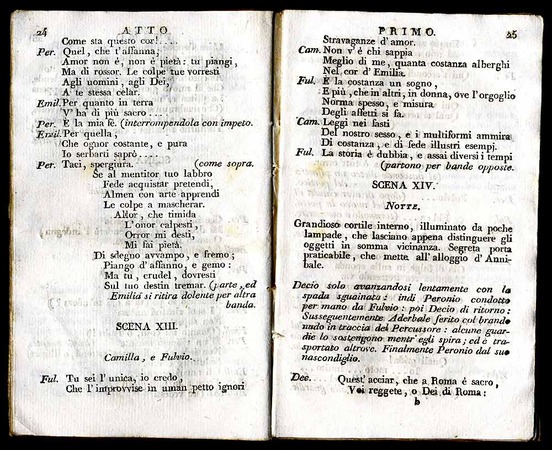 24 ATTO
Come sta questo cor!....
Per. Quel, che t'affanna;
Amor non è, non è pietà: tu piangi,
Ma di rossor. Le colpe tue vorresti
Agli uomini, agli Dei,
A te stessa celar.
Emil. Per quanto in terra
V'ha di più sacro....
Per. E la mia fè. (interrompendola con impeto.
Emil. Per quella,
Che ognor costante, e pura
Io serbarti saprò....
Per. Taci, spergiura. (come sopra.
Se al mentitor tuo labbro
Fede acquistar pretendi,
Almen con arte apprendi
Le colpe a mascherar.
Allor, che timida
L'onor calpesti,
Orror mi desti,
Mi fai pietà.
Di sdegno avvampo, e fremo;
Piango d'affanno, e gemo:
Ma tu, crudel, dovresti
Sul tuo destin tremar. (parte, ed
Emilia si ritira dolente per altra
banda.
SCENA XIII.
Camilla, e Fulvio.
Ful. Tu sei l'unica, io credo,
Che l'improvvise in uman petto ignori
PRIMO. 25
Stravaganze d'amor.
Cam. Non v'è chi sappia
Meglio di me, quanta costanza alberghi
Nel cor d'Emilia.
Ful. E la costanza un sogno,
E più, che in altri, in donna, ove l'orgoglio
Norma spesso, e misura
Degli affetti si fa.
Cam. Leggi nei fasti
Del nostro sesso, e i multiformi ammira
Di costanza, e di fede illustri esempj.
Ful. La storia è dubbia, e assai diversi i tempi
(partono per bande opposte.
SCENA XIV.
NOTTE.
Grandioso cortile interno, illuminato da poche
lampade, che lasciano appena distinguere gli
oggetti in somma vicinanza. Segreta porta
praticabile, che mette all'alloggio d'Anni-
bale.
Decio solo avanzandosi lentamente con la
spada sguainata: indi Peronio condotto
per mano da Fulvio: poi Decio di ritorno:
Susseguentemente Aderbale ferito col brando
nudo in traccia del Percussore: alcune guar-
die lo sostengono mentr'egli spira; ed è tra-
sportato altrove. Finalmente Peronio dal suo
nascondiglio.
Dec. Quest'acciar, che a Roma è sacro,
Voi reggete, o Dei di Roma:
b